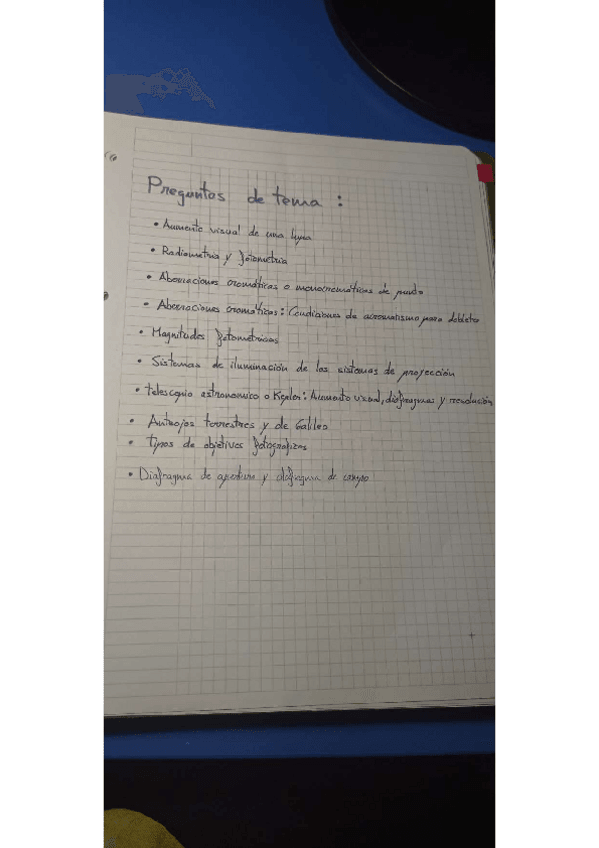 Preguntas de tema :
• Aumento visual de una lupa
• Radiometria y fotometria
• Aberraciones cromáticas o monocromáticas de punto
• Aberraciones cromáticas: Condiciones de acromatismo para dobletes
• Magnitudes fotométricas
• Sistemas de iluminación de los sistemas de proyección
• telescopio astronomico o Kepler: Aumento visual, diafragmas y resolución
• Anteojos terrestres y de Galileo
• tipos de objetivos fotograficos
• Diafragma de apertura y diafragma de campo